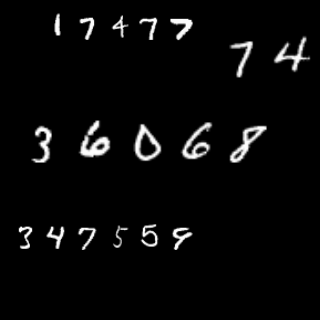 17477
74
36068
347559